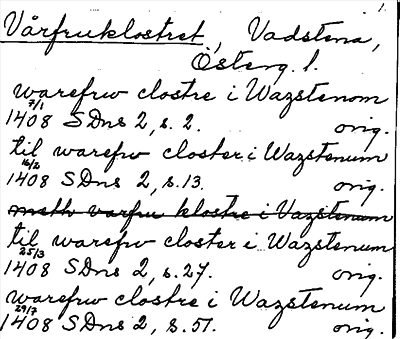 1.
Vårfruklostret, Vadstena,
Österg. l.
warefrw clostre i Wazstenom
7/1 1408 SDns 2, s. 2. orig.
til warefrw closter i Wazstenum
16/2 1408 SDns 2, s. 13. orig.
meth varfru klostre i Vazstenum
til warefrw closter i Wazstenum
25/3 1408 SDns 2, s. 27. orig.
warefrw clostre i Wazstenum
29/7 1408 SDns 2, s. 51. orig.